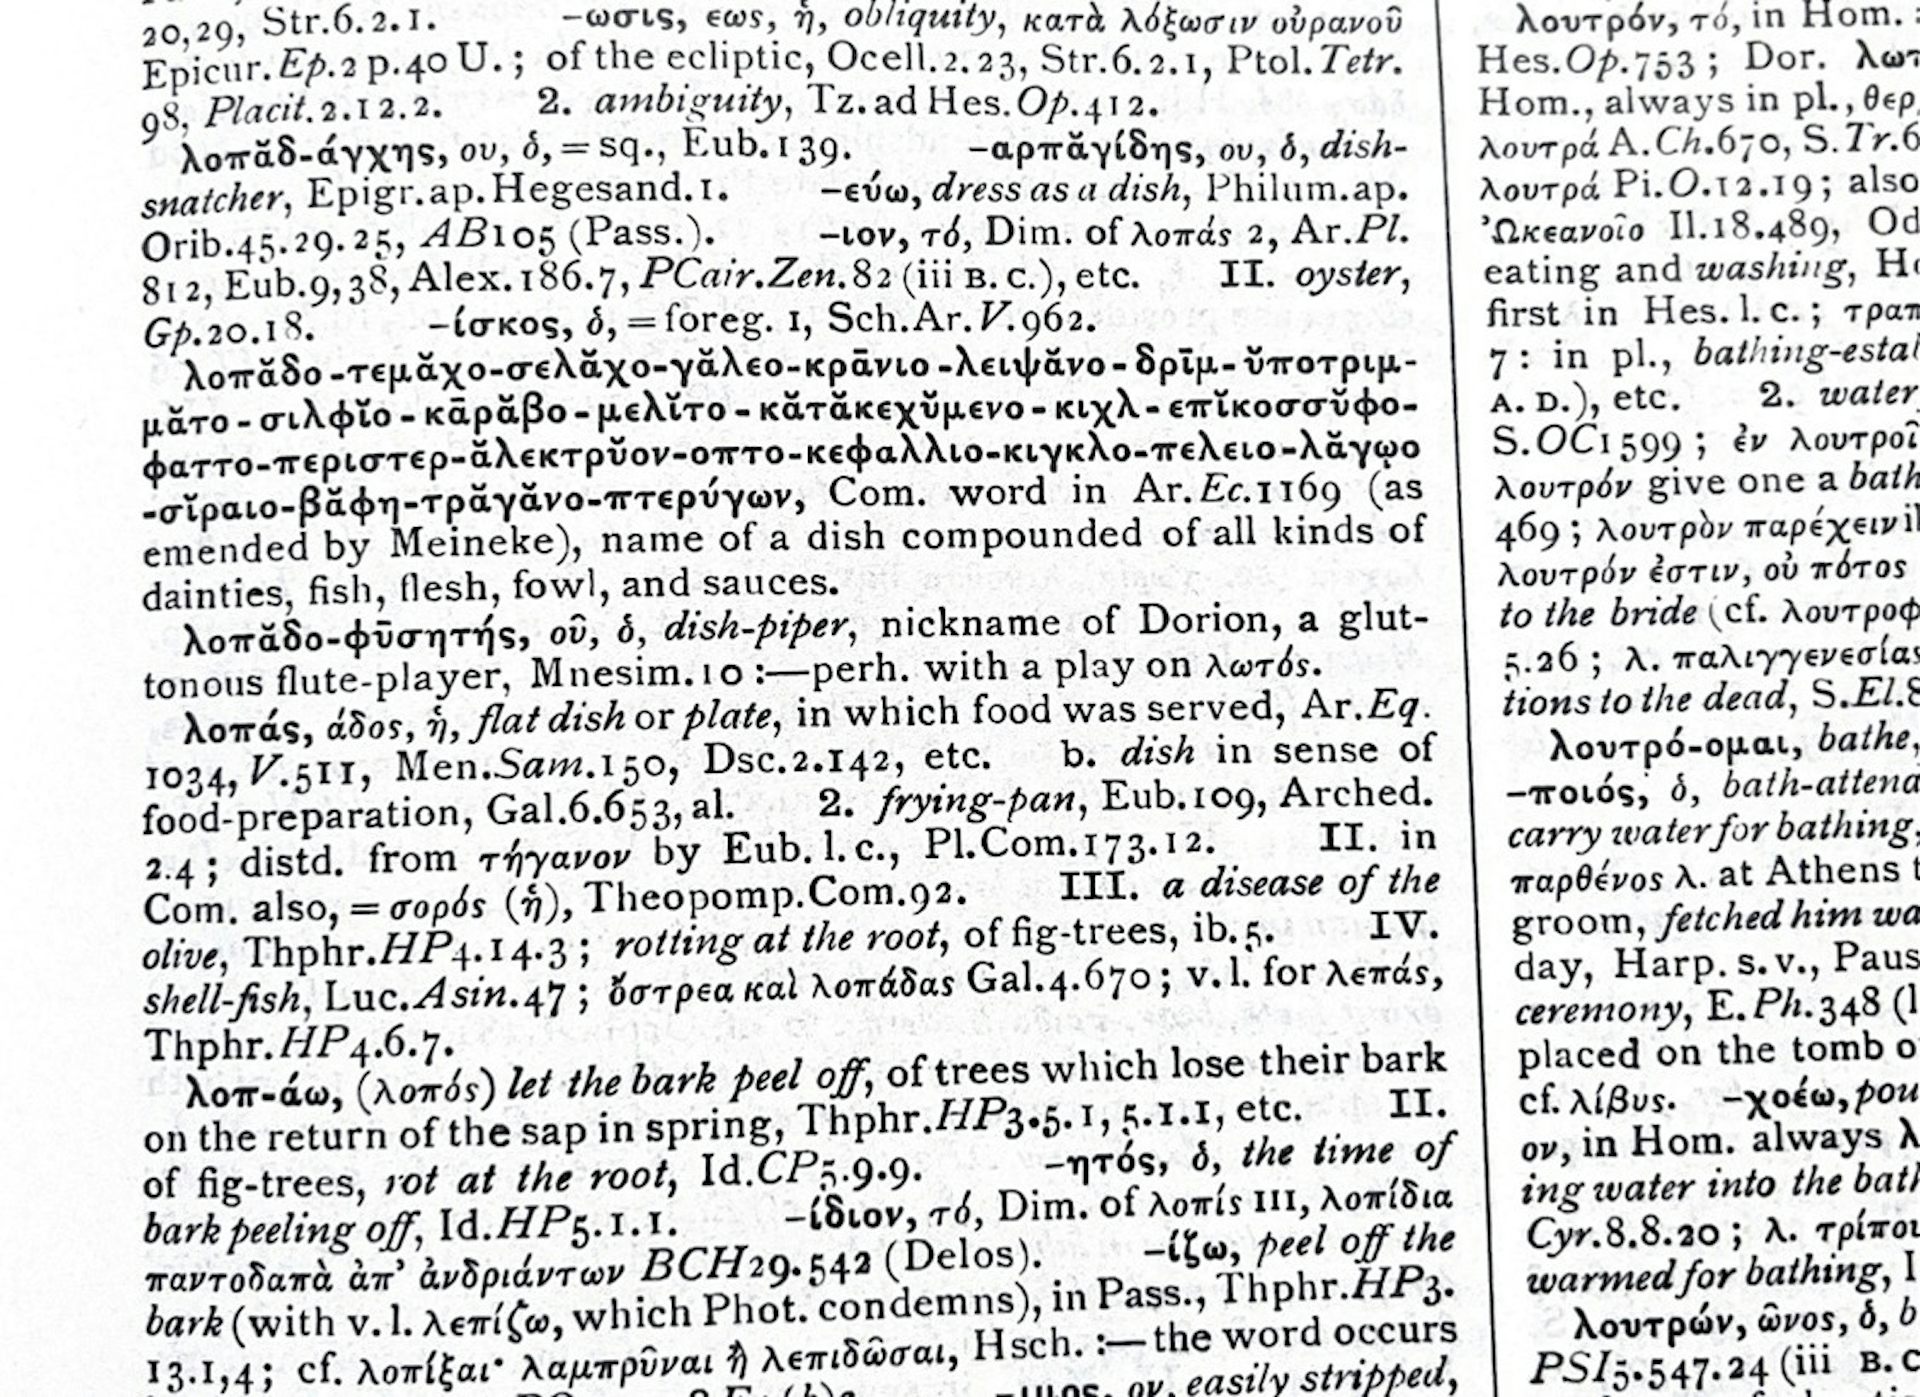 20,29, Str.6.2.1. -ωσις, εως, ἡ, obliquity, κατὰ λόξωσιν οὐρανοῦ
Epicur.Ep.2 p.40 U.; of the ecliptic, Ocell.2.23, Str.6.2.1, Ptol.Tetr.
98, Placit.2.12.2. 2. ambiguity, Tz. ad Hes.Op.412.
λοπᾰδ-άγχης, ου, ὁ, = sq., Eub.139. -αρπᾰγίδης, ου, ὁ, dish-
snatcher, Epigr.ap.Hegesand.1. -εύω, dress as a dish, Philum.ap.
Orib.45.29.25, AB105 (Pass.). -ιον, τό, Dim. of λοπάς 2, Ar.Pl.
812, Eub.9,38, Alex.186.7, PCair.Zen.82 (iii B. C.), etc. II. oyster,
Gp.20.18. -ίσκος, ὁ, = foreg. 1, Sch.Ar.V.962.
λοπᾰδο-τεμᾰχο-σελᾰχο-γᾰλεο-κρᾱνιο-λειψᾰνο-δρῑμ-ῠποτριμ-
μᾰτο-σιλφῐο-κᾱρᾰβο-μελῐτο-κᾰτᾰκεχῠμενο-κιχλ-επῐκοσσῠφο-
φαττο-περιστερ-ᾰλεκτρῠον-οπτο-κεφαλλιο-κιγκλο-πελειο-λᾰγῳο
-σῐραιο-βᾰφη-τρᾰγᾰνο-πτερύγων, Com. word in Ar.Ec.1169 (as
emended by Meineke), name of a dish compounded of all kinds of
dainties, fish, flesh, fowl, and sauces.
λοπᾰδο-φῡσητής, οῦ, ὁ, dish-piper, nickname of Dorion, a glut-
tonous flute-player, Mnesim.10 :—perh. with a play on λωτός.
λοπάς, άδος, ἡ, flat dish or plate, in which food was served, Ar.Eq.
1034, V.511, Men.Sam.150, Dsc.2.142, etc. b. dish in sense of
food-preparation, Gal.6.653, al. 2. frying-pan, Eub.109, Arched.
2.4; distd. from τήγανον by Eub. l. c., Pl.Com.173.12. II. in
Com. also, = σορός (ἡ), Theopomp.Com.92. III. a disease of the
olive, Thphr.HP4.14.3; rotting at the root, of fig-trees, ib.5. IV.
shell-fish, Luc.Asin.47; ὄστρεα καὶ λοπάδας Gal.4.670; v. l. for λεπάς,
Thphr.HP4.6.7.
λοπ-άω, (λοπός) let the bark peel off, of trees which lose their bark
on the return of the sap in spring, Thphr.HP3.5.1, 5.1.1, etc. II.
of fig-trees, rot at the root, Id.CP5.9.9. -ητός, ὁ, the time of
bark peeling off, Id.HP5.1.1. -ίδιον, τό, Dim. of λοπίς III, λοπίδια
παντοδαπὰ ἀπ' ἀνδριάντων BCH29.542 (Delos). -ίζω, peel off the
bark (with v. l. λεπίζω, which Phot. condemns), in Pass., Thphr.HP3.
13.1,4; cf. λοπίξαι· λαμπρῦναι ἢ λεπιδῶσαι, Hsch. :—the word occurs
ον, easily stripped,
λουτρόν, τό, in Hom. :
Hes.Op.753; Dor. λωτ
Hom., always in pl., θερ
λουτρά A.Ch.670, S.Tr.6
λουτρά Pi.O.12.19; also
Ὠκεανοῖο Il.18.489, Od
eating and washing, He
first in Hes. l. c.; τραπ
7: in pl., bathing-estal
A. D.), etc. 2. water
S.OC1599; ἐν λουτροῖ
λουτρόν give one a bath
469; λουτρὸν παρέχειν il
λουτρόν ἐστιν, οὐ πότος
to the bride (cf. λουτροφ
5.26; λ. παλιγγενεσίας
tions to the dead, S.El.8
λουτρό-ομαι, bathe,
-ποιός, ὁ, bath-attena
carry water for bathing,
παρθένος λ. at Athens t
groom, fetched him wa
day, Harp. s. v., Paus
ceremony, E.Ph.348 (l
placed on the tomb o
cf. λίβυς. -χοέω, pou
ον, in Hom. always λ
ing water into the bath
Cyr.8.8.20; λ. τρίπου
warmed for bathing, I
λουτρών, ῶνος, ὁ, b
PSI5.547.24 (iii B. C